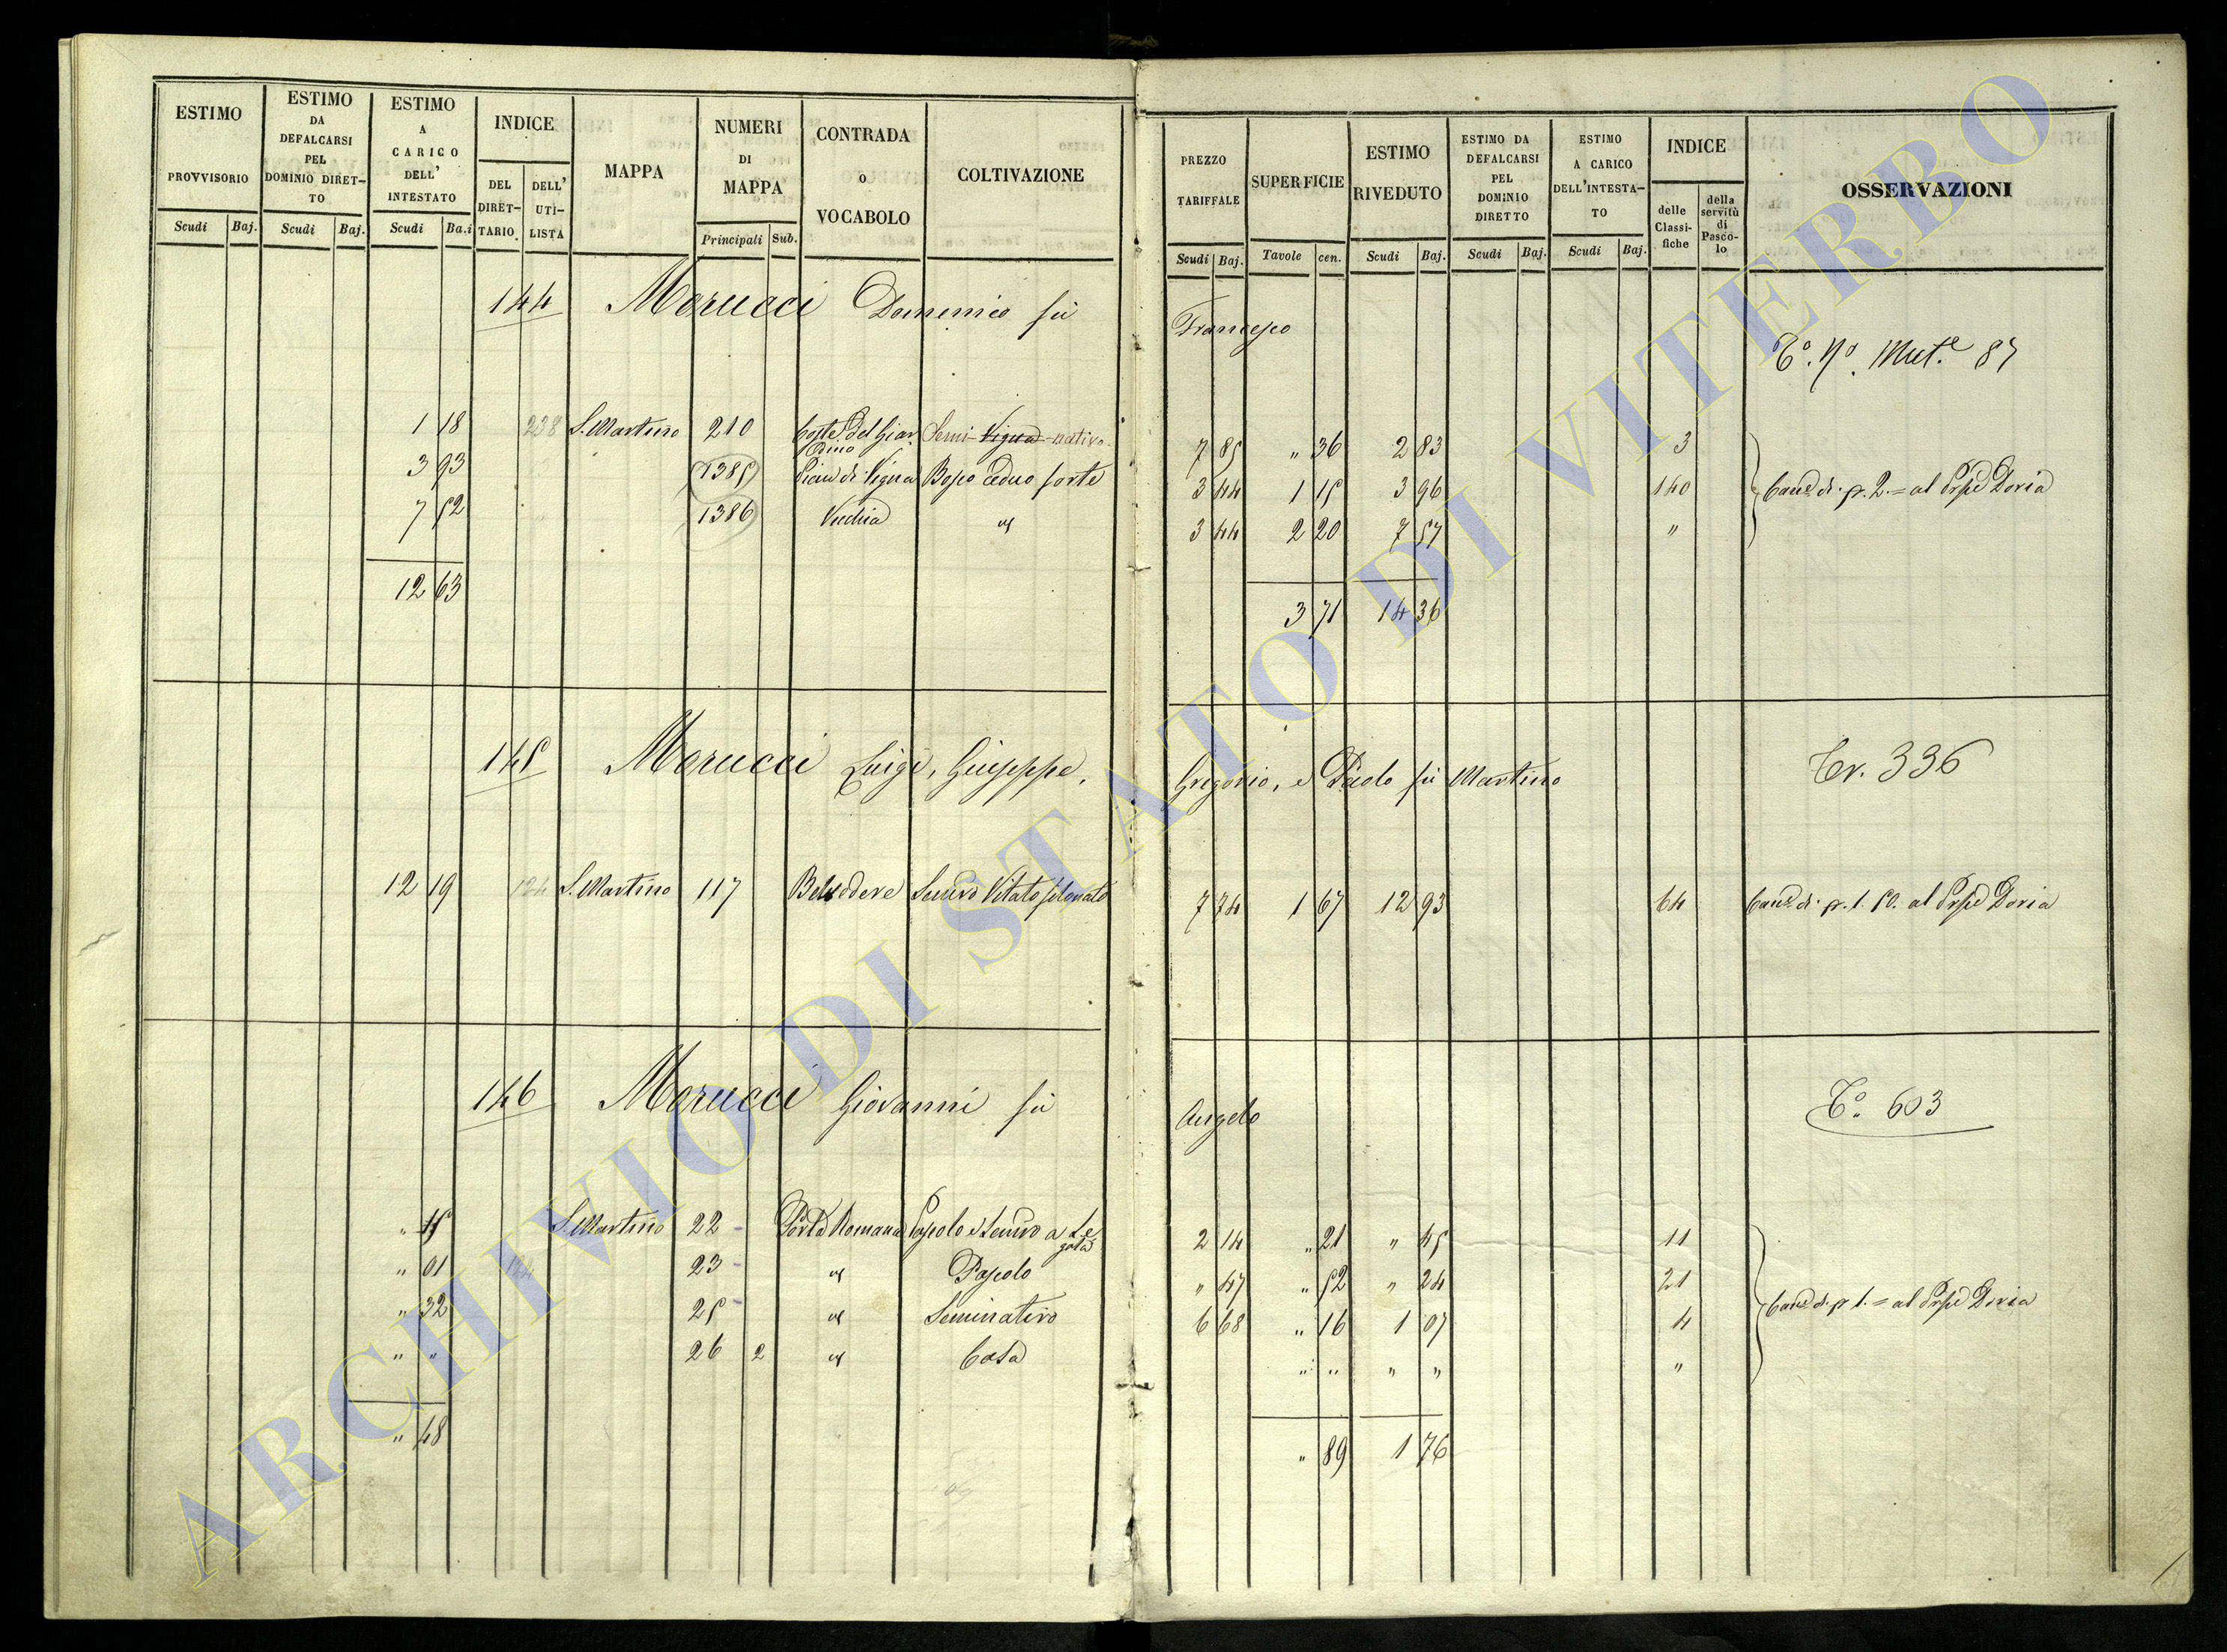 ESTIMO PROVVISORIO Scudi Baj.
ESTIMO DA DEFALCARSI PEL DOMINIO DIRET-TO Scudi Baj.
ESTIMO A CARICO DELL' INTESTATO Scudi Ba.i
INDICE DEL DIRET-TARIO DELL' UTI-LISTA
MAPPA
NUMERI DI MAPPA Principali Sub.
CONTRADA O VOCABOLO
COLTIVAZIONE
PREZZO TARIFFALE Scudi Baj.
SUPERFICIE Tavole cen.
ESTIMO RIVEDUTO Scudi Baj.
ESTIMO DA DEFALCARSI PEL DOMINIO DIRETTO Scudi Baj.
ESTIMO A CARICO DELL'INTESTA-TO Scudi Baj.
INDICE delle Classi-fiche della servitù di Pasco-lo
OSSERVAZIONI
144 Morucci Domenico fù Francesco
T.o N.o Mut.e 87
1 18 238 S. Martino 210 Coste del Giardino Semi-Vigna-nativo 7 85 " 36 2 83 3
3 93 1385 Pian di Vigna Bosco ceduo forte 3 44 1 15 3 96 140 di p. 2.= al Doria
7 52 1386 Vecchia 3 44 2 20 7 57 "
12 63 3 71 14 36
145 Morucci Luigi, Giuseppe, Gregorio, e Paolo fù Martino
Tr. 336
12 19 124 S. Martino 117 Belvedere Semvo Vitato 7 74 1 67 12 93 64 di p. 1. 50. al Doria
146 Morucci Giovanni fù Angelo
T.o 603
" 15 S. Martino 22 Porta Romana Pascolo e Semvo a 2 14 " 21 " 45 11
" 01 23 Pascolo " 47 " 52 " 24 21
" 32 25 Seminativo 6 68 " 16 1 07 4 di p 1.= al Doria
" " 26 2 Casa " " " " "
" 48 " 89 1 76
ARCHIVIO DI STATO DI VITERBO